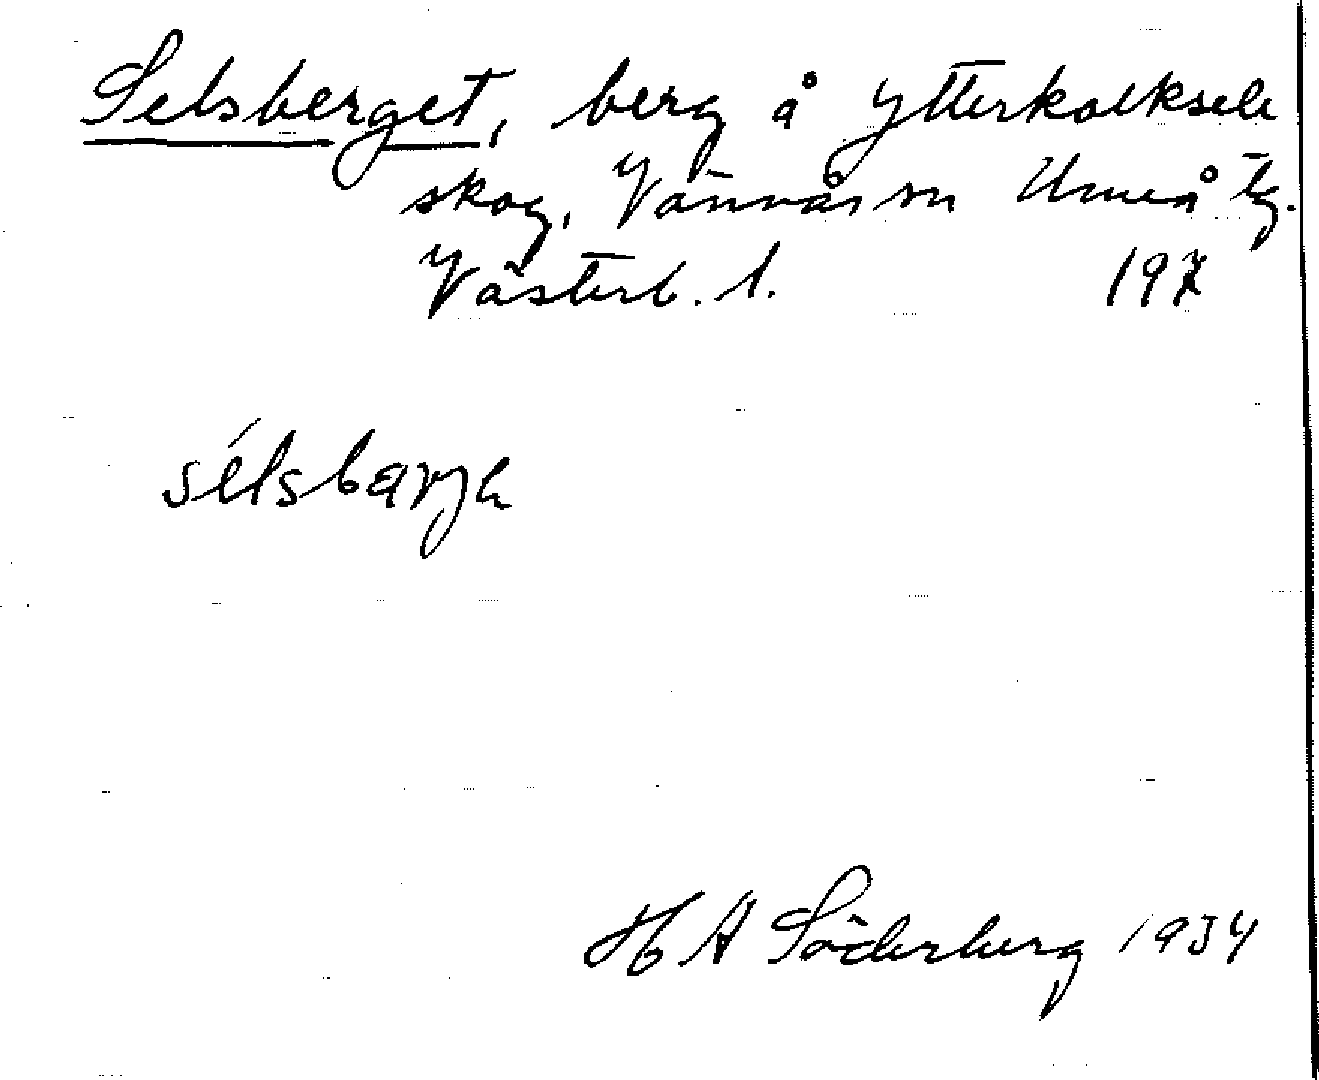 Selsberget, berg å Ytterkolksele
skog, Vännäs sn Umeå tg.
Västerb. l. 197
sélsbærjə
H A Söderberg 1934